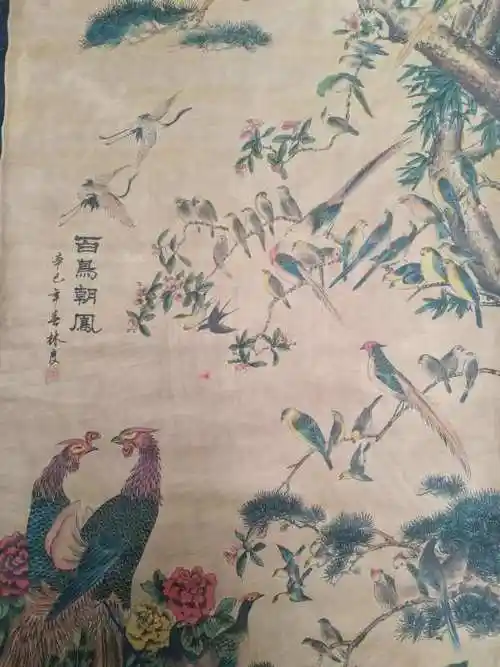 百鳥朝鳳
辛巳年春林良